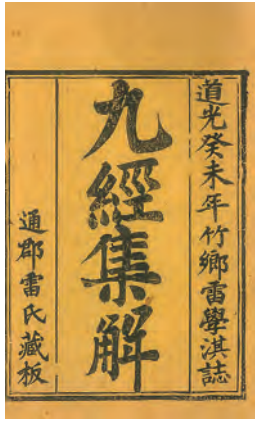 道光癸未年竹鄉雷學淇誌
九經集解
通郡雷氏藏板